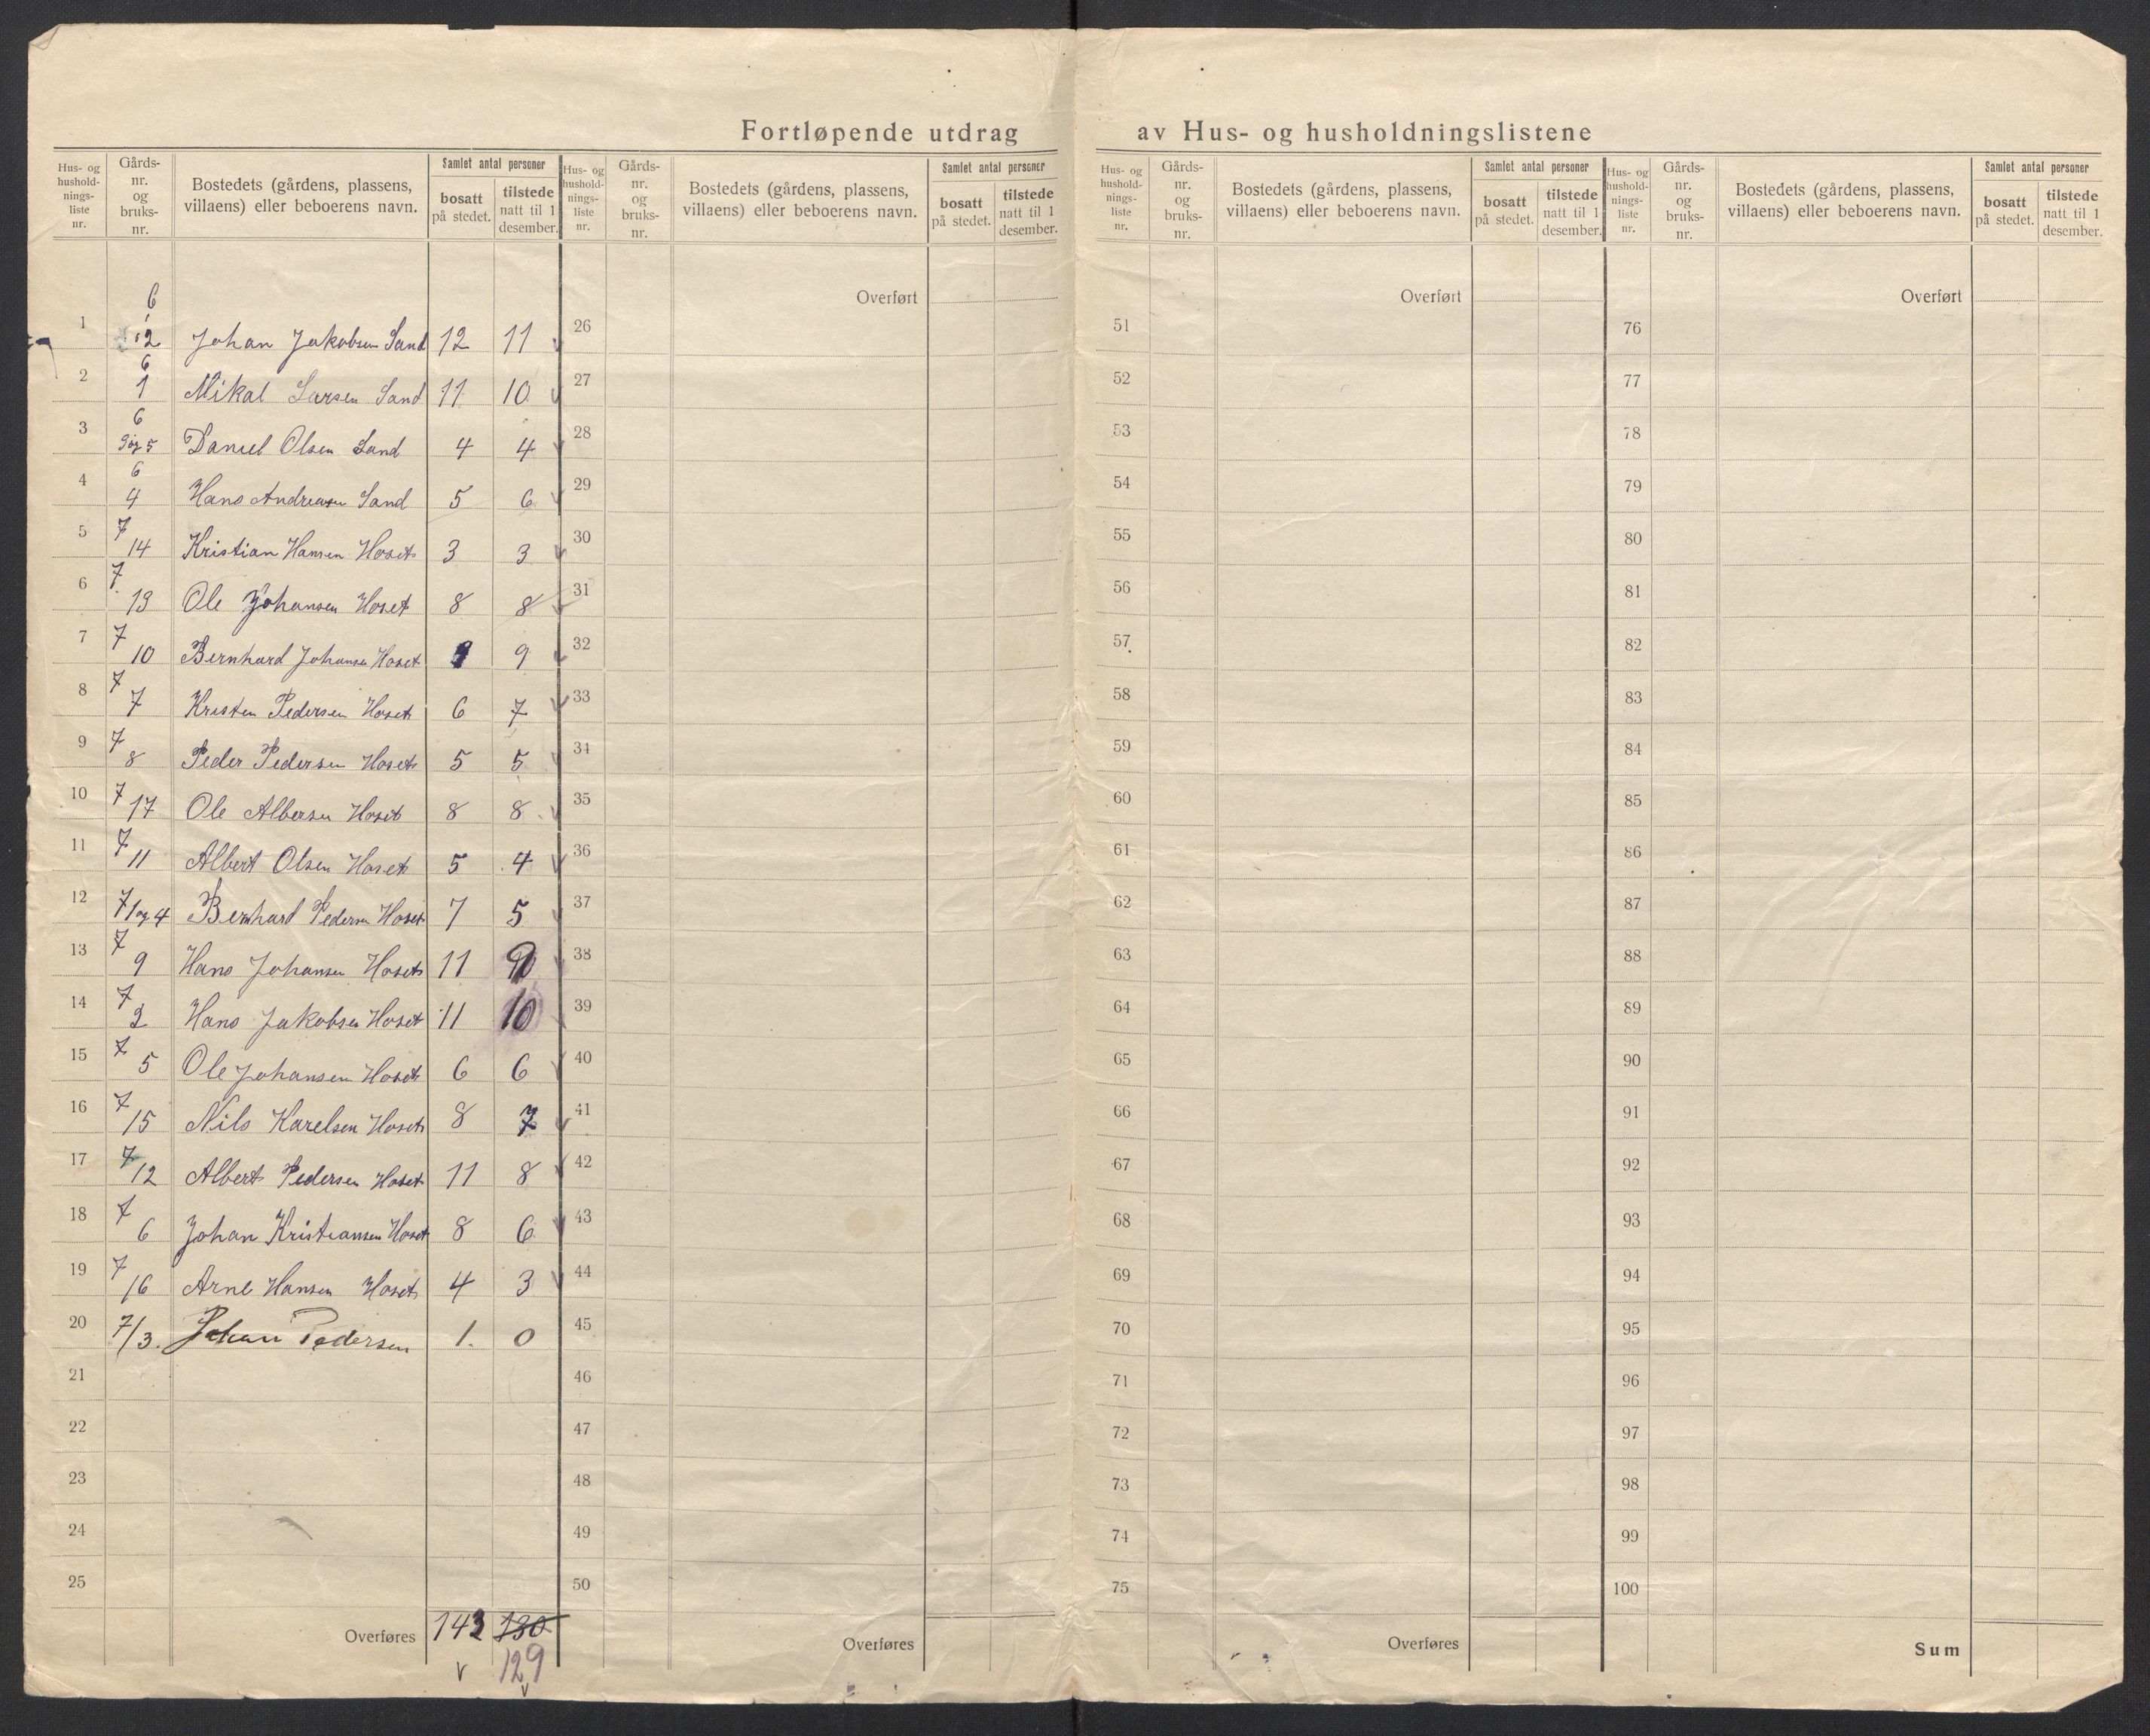 Fortløpende utdrag av Hus- og husholdningslistene
Hus- og hushold-nings-liste nr. Gårds-nr. og bruks-nr. Bostedets (gårdens, plassens, villaens) eller beboerens navn. Samlet antal personer bosatt på stedet. tilstede natt til 1 desember.
Hus- og hushold-nings-liste nr. Gårds-nr. og bruks-nr. Bostedets (gårdens, plassens, villaens) eller beboerens navn. Samlet antal personer bosatt på stedet. tilstede natt til 1 desember.
Hus- og hushold-nings-liste nr. Gårds-nr. og bruks-nr. Bostedets (gårdens, plassens, villaens) eller beboerens navn. Samlet antal personer bosatt på stedet. tilstede natt til 1 desember.
Hus- og hushold-nings-liste nr. Gårds-nr. og bruks-nr. Bostedets (gårdens, plassens, villaens) eller beboerens navn. Samlet antal personer bosatt på stedet. tilstede natt til 1 desember.
Overført Overført Overført
1 6 2 Johan Jakobsen Sand 12 11 26 51 76
2 6 1 Mikal Larsen Sand 11 10 27 52 77
3 6 3og5 Daniel Olsen Sand 4 4 28 53 78
4 6 4 Hans Andreasen Sand 5 6 29 54 79
5 7 14 Kristian Hansen Hoset 3 3 30 55 80
6 7 13 Ole Johansen Hoset 8 8 31 56 81
7 7 10 Bernhard Johansen Hoset 9 9 32 57 82
8 7 7 Kristen Pedersen Hoset 6 7 33 58 83
9 7 8 Peder Pedersen Hoset 5 5 34 59 84
10 7 17 Ole Albersen Hoset 8 8 35 60 85
11 7 11 Albert Olsen Hoset 5 4 36 61 86
12 7 1og4 Bernhard Pedersen Hoset 7 5 37 62 87
13 7 9 Hans Johansen Hoset 11 38 63 88
14 7 2 Hans Jakobsen Hoset 11 10 39 64 89
15 7 5 Ole Johansen Hoset 6 6 40 65 90
16 7 15 Nils Karelsen Hoset 8 7 41 66 91
17 7 12 Albert Pedersen Hoset 11 8 42 67 92
18 7 6 Johan Kristiansen Hoset 8 6 43 68 93
19 7 16 Arne Hansen Hoset 4 3 44 69 94
20 7/3. Johan Pedersen 1. 0 45 70 95
21 46 71 96
22 47 72 97
23 48 73 98
24 49 74 99
25 50 75 100
Overføres 143 130 Overføres Overføres Sum
129